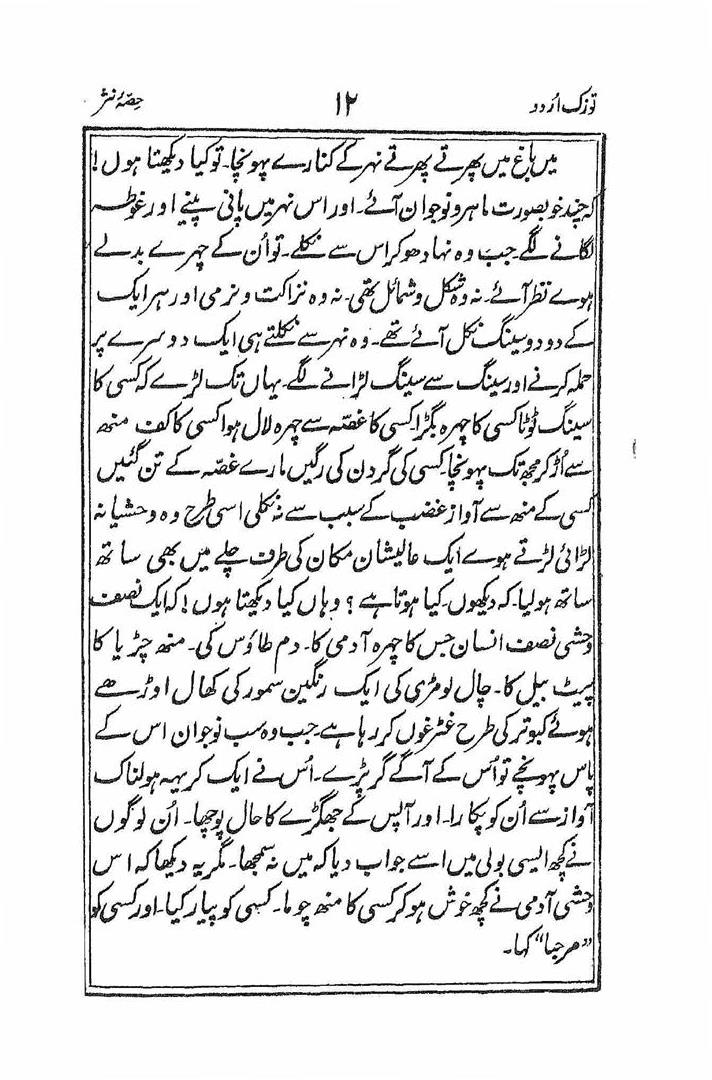 توزک اُردو ۱۲ حصۂ نثر
میں باغ میں پھرتے پھرتے نہر کے کنارے پہونچا۔ تو کیا دیکھتا ہوں!
کہ چند خوبصورت ماہرو نوجوان آئے۔ اور اس نہر میں پانی پینے اور غوطہ
لگانے لگے۔ جب وہ نہا دھو کر اس سے نکلے۔ تو اُن کے چہرے بدلے
ہوے نظر آئے۔ نہ وہ شکل و شمائل تھی۔ نہ وہ نزاکت و نرمی اور ہر ایک
کے دو دو سینگ نکل آئے تھے۔ وہ نہر سے نکلتے ہی ایک دوسرے پر
حملہ کرنے اور سینگ سے سینگ لڑانے لگے۔ یہاں تک لڑے کہ کسی کا
سینگ ٹوٹا کسی کا چہرہ بگڑا کسی کا غصّہ سے چہرہ لال ہوا کسی کا کف منھ
سے اُڑ کر مجھ تک پہونچا۔ کسی کی گردن کی رگیں مارے غصّہ کے تن گئیں
کسی کے منھ سے آواز غضب کے سبب سے نہ نکلی اسی طرح وہ وحشیانہ
لڑائی لڑتے ہوے ایک عالیشان مکان کی طرف چلے میں بھی ساتھ
ساتھ ہو لیا۔ کہ دیکھوں۔ کیا ہوتا ہے؟ وہاں کیا دیکھتا ہوں! کہ ایک نصف
وحشی نصف انسان جس کا چہرہ آدمی کا۔ دم طاؤس کی۔ منھ چڑیا کا
پیٹ بیل کا۔ چال لومڑی کی ایک رنگین سمور کی کھال اوڑھے
ہوئے کبوتر کی طرح غٹرغوں کر رہا ہے۔ جب وہ سب نوجوان اس کے
پاس پہونچے تو اُس کے آگے گر پڑے۔ اُس نے ایک کریہہ ہولناک
آواز سے اُن کو پکارا۔ اور آپس کے جھگڑے کا حال پوچھا۔ اُن لوگوں
نے کچھ ایسی بولی میں اسے جواب دیا کہ میں نہ سمجھا۔ مگر یہ دیکھا کہ اس
وحشی آدمی نے کچھ خوش ہو کر کسی کا منھ چوما۔ کسی کو پیار کیا۔ اور کسی کو
"مرحبا" کہا۔